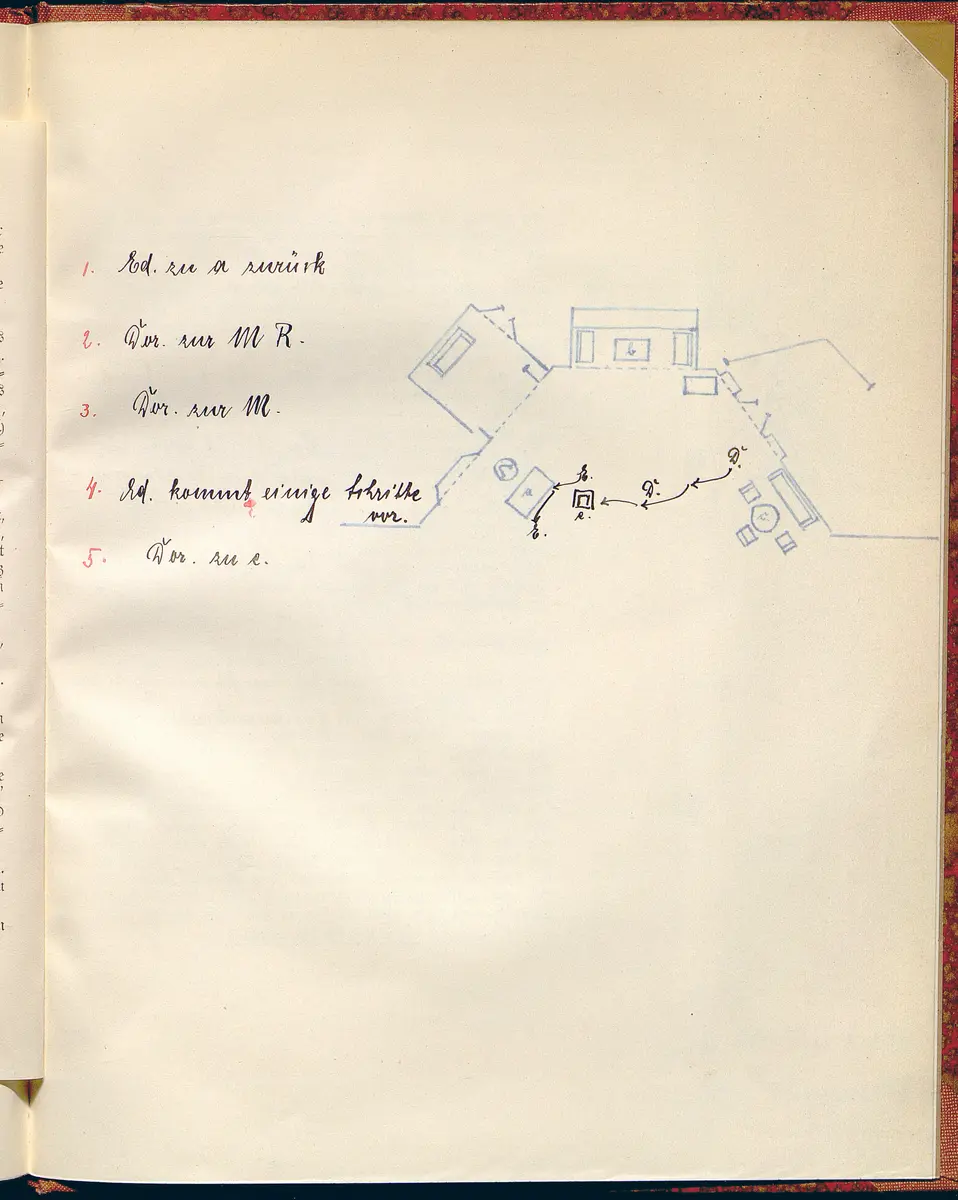 1. Ed. zu a zurück
2. Dor. zur M R.
3. Dor. zur M.
4. Ed. kommt einige Schritte
vor.
5. Dor. zu c.
b
a
E.
c.
E.
D.
D.